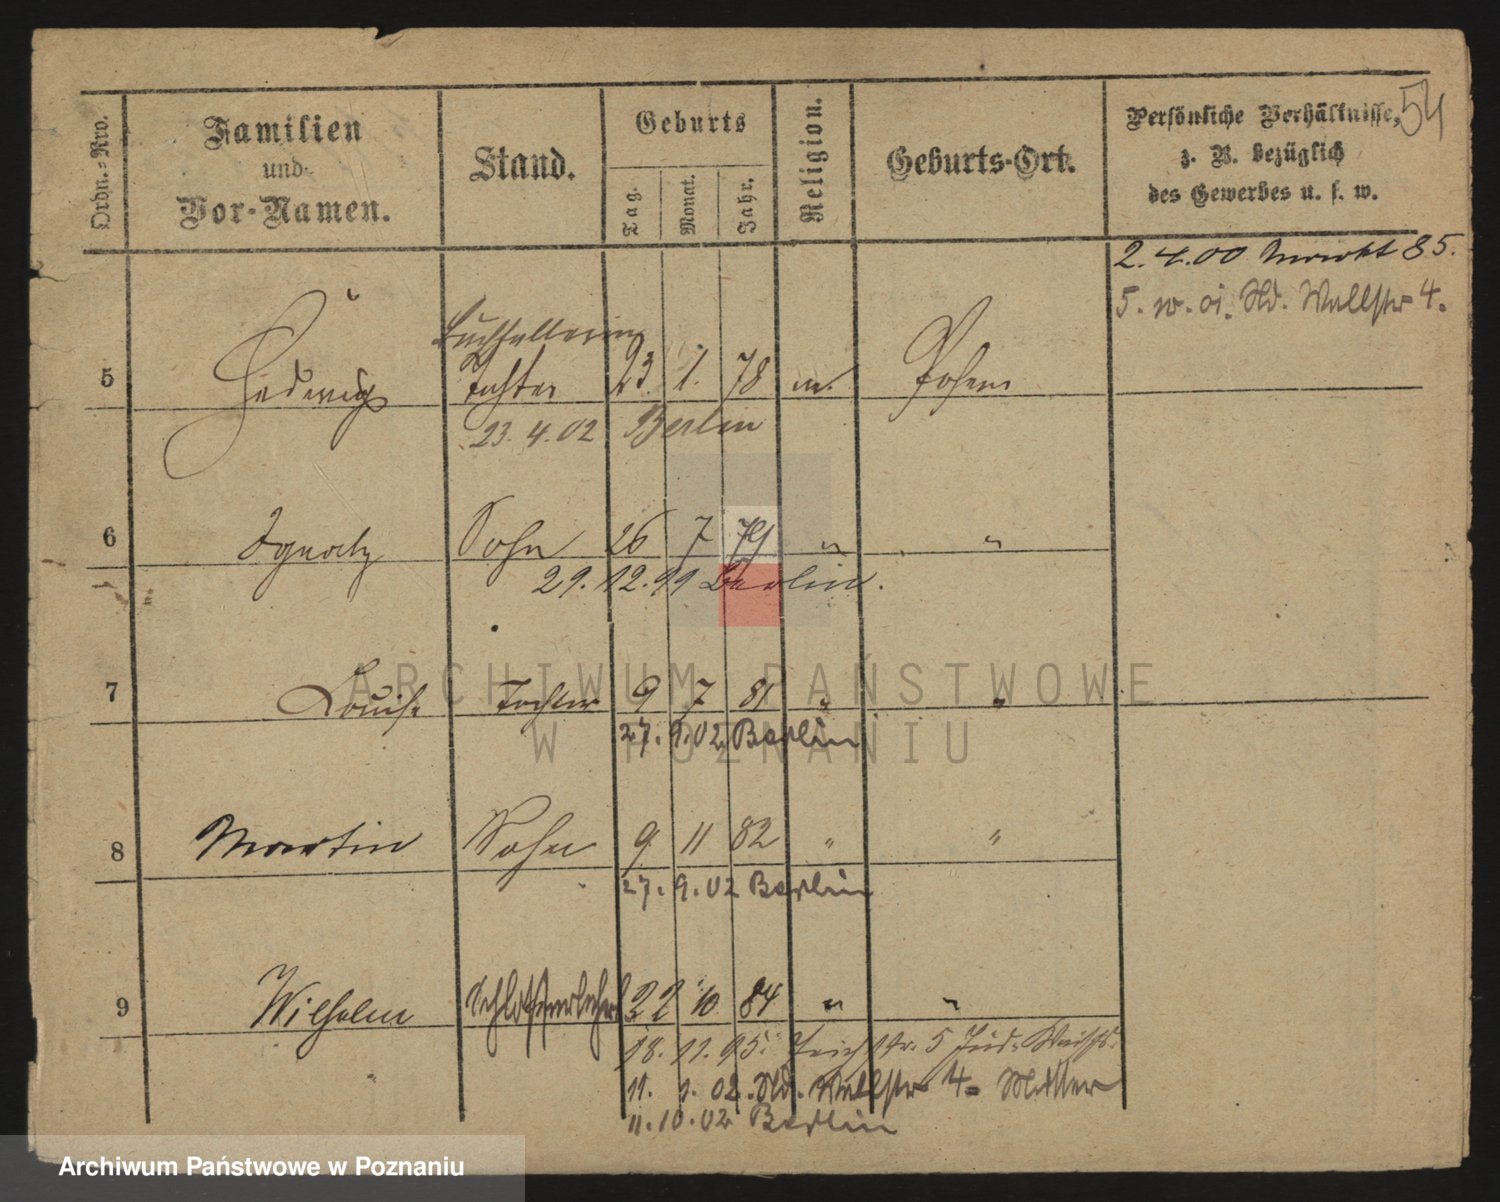 54
Ordn.-Nro.
Familien
und
Vor-Namen.
Stand.
Geburts
Tag.
Monat.
Jahr.
Religion.
Geburts-Ort.
Persönliche Verhältnisse,
z. B. bezüglich
des Gewerbes u. s. w.
2.4.00 Markt 85.
Wallstr 4.
Buchhalterin
5 Hedwig Tochter 23. 1. 78 m. Posen
23.4.02 Berlin
6 Ignatz Sohn 26 7 79 " "
29.12.99 Berlin.
7 Louise Tochter 9 7 81 " "
27.9.02 Berlin
8 Martin Sohn 9 11 82 " "
27.9.02 Berlin
9 Wilhelm Schlosserlehrl 22 10 84 " "
18.11.95. Teichstr. 5 Jüd.
11. 1. 02. Wallstr 4. Mutter
11.10.02 Berlin
ARCHIWUM PAŃSTWOWE
W POZNANIU
Archiwum Państwowe w Poznaniu